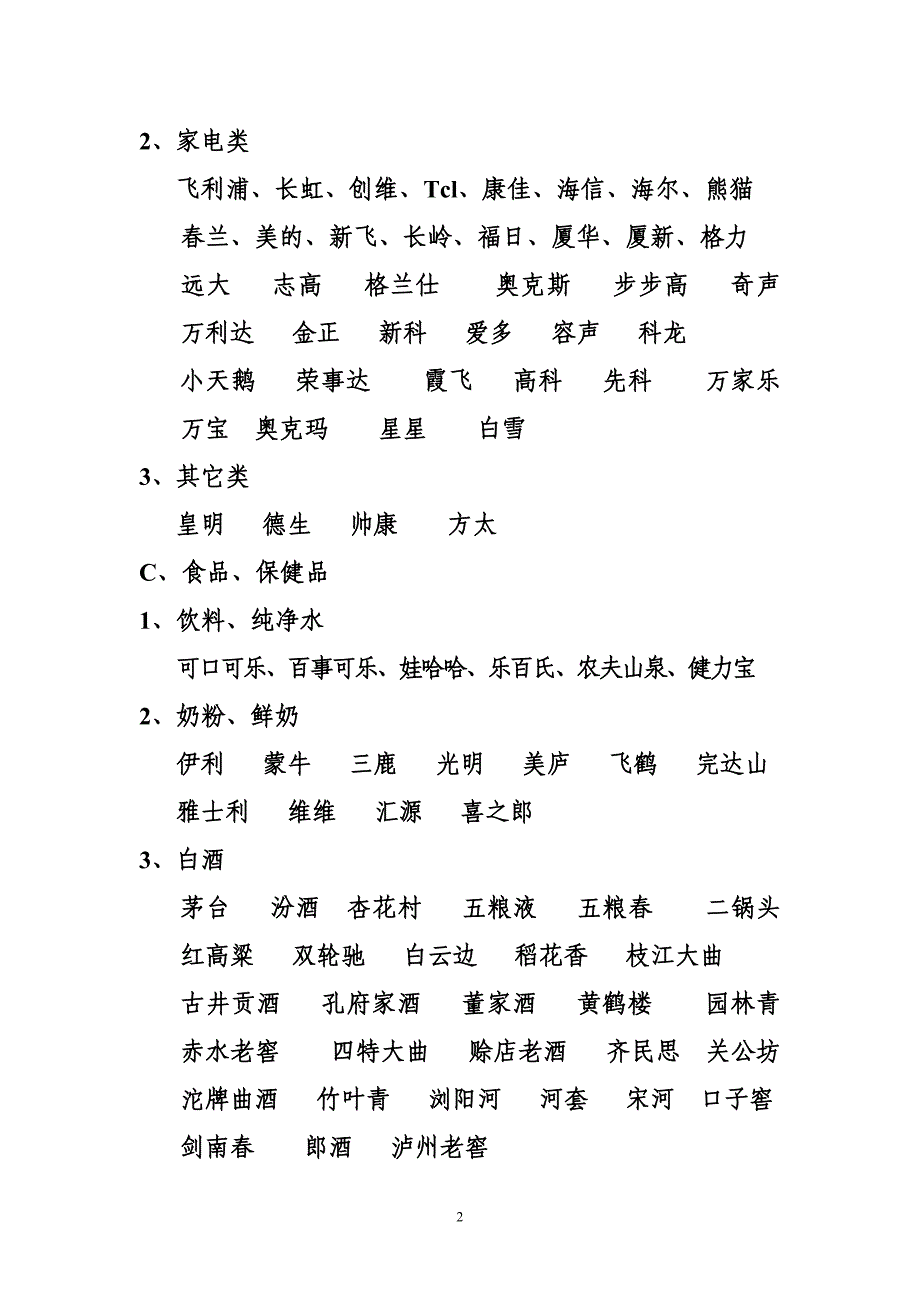 2、家电类
飞利浦、长虹、创维、Tcl、康佳、海信、海尔、熊猫
春兰、美的、新飞、长岭、福日、厦华、厦新、格力
远大 志高 格兰仕 奥克斯 步步高 奇声
万利达 金正 新科 爱多 容声 科龙
小天鹅 荣事达 霞飞 高科 先科 万家乐
万宝 奥克玛 星星 白雪
3、其它类
皇明 德生 帅康 方太
C、食品、保健品
1、饮料、纯净水
可口可乐、百事可乐、娃哈哈、乐百氏、农夫山泉、健力宝
2、奶粉、鲜奶
伊利 蒙牛 三鹿 光明 美庐 飞鹤 完达山
雅士利 维维 汇源 喜之郎
3、白酒
茅台 汾酒 杏花村 五粮液 五粮春 二锅头
红高粱 双轮驰 白云边 稻花香 枝江大曲
古井贡酒 孔府家酒 董家酒 黄鹤楼 园林青
赤水老窖 四特大曲 赊店老酒 齐民思 关公坊
沱牌曲酒 竹叶青 浏阳河 河套 宋河 口子窖
剑南春 郎酒 泸州老窖
2